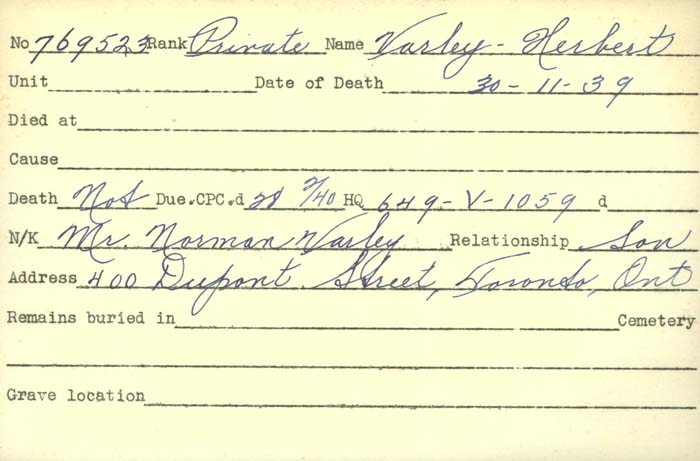 No 769523 Rank Private Name Varley - Herbert
Unit Date of Death 30-11-39
Died at
Cause
Death Not Due.CPC.d 28 2/40 HQ 649-V-1059 d
N/K Mr. Norman Varley Relationship Son
Address 400 Dupont Street, Toronto, Ont
Remains buried in Cemetery
Grave location